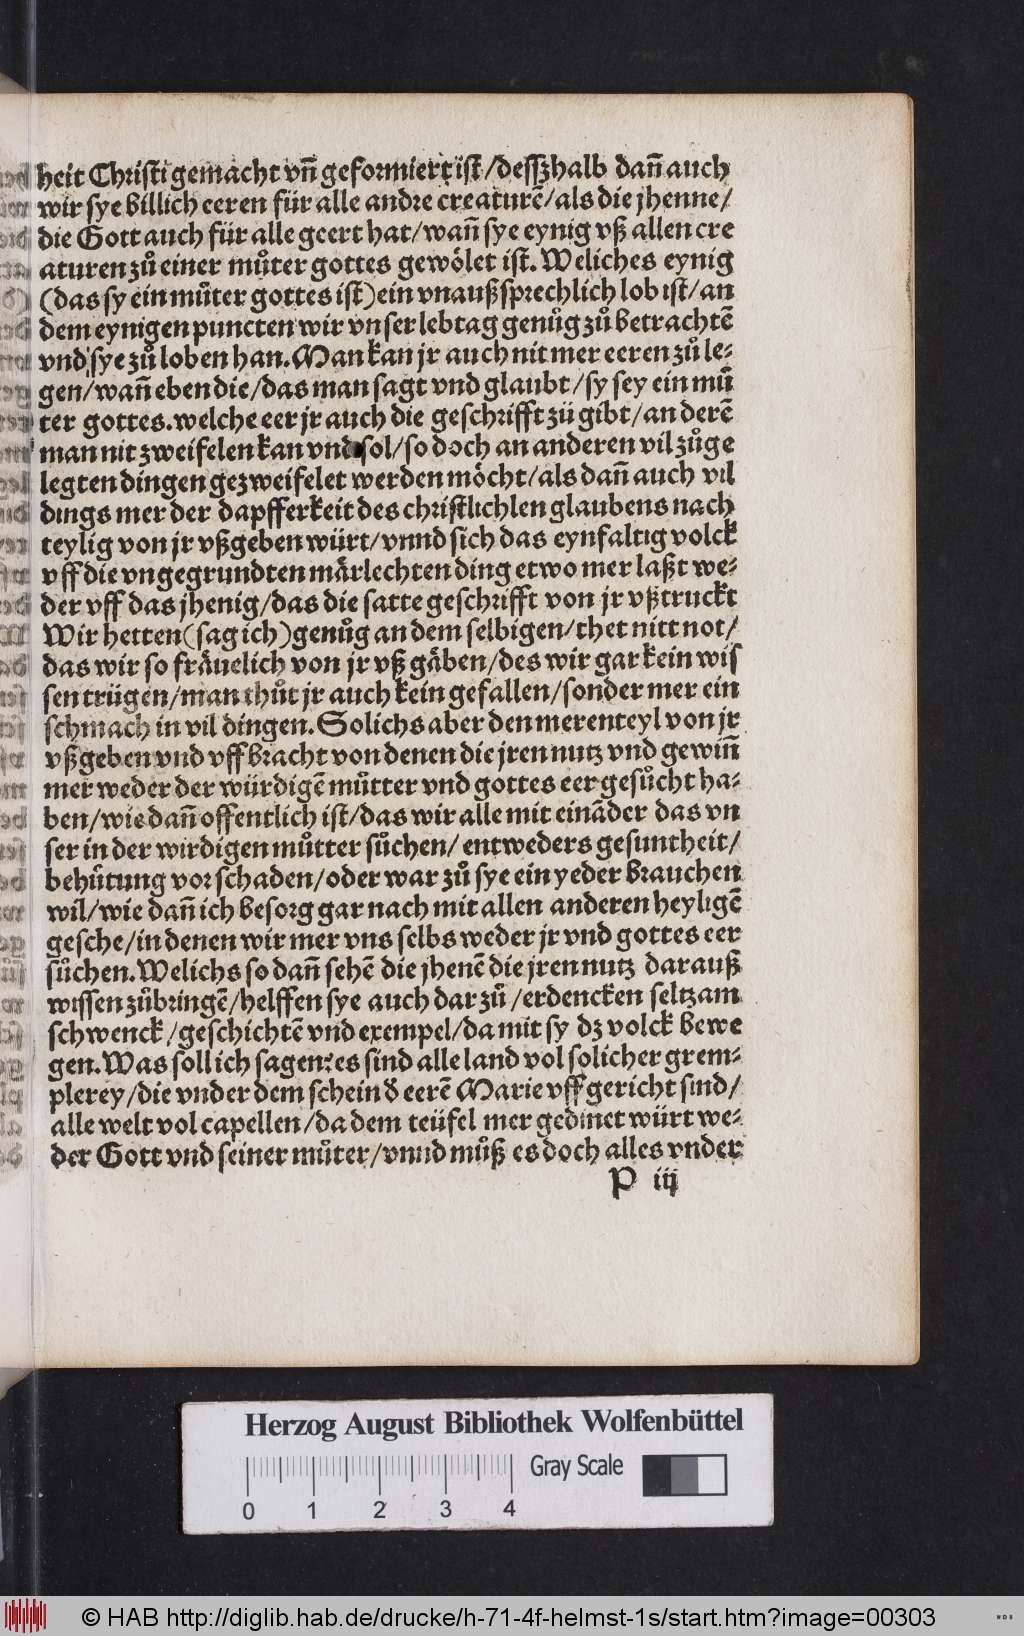 heit Christi gemacht vñ geformiert ist/desszhalb dañ auch
wir sye billich eeren für alle andre creaturẽ/als die jhenne/
die Gott auch für alle geert hat/wañ sye eynig vß allen cre
aturen zů einer můter gottes gewölet ist. Weliches eynig
(das sy ein můter gottes ist) ein vnaußsprechlich lob ist/an
dem eynigen puncten wir vnser lebtag genůg zů betrachtẽ
vnd sye zů loben han. Man kan jr auch nit mer eeren zů le⸗
gen/wañ eben die/das man sagt vnd glaubt/sy sey ein mů
ter gottes. welche eer jr auch die geschrifft zů gibt/an derẽ
man nit zweifelen kan vnd sol/so doch an anderen vil zůge
legten dingen gezweifelet werden möcht/als dañ auch vil
dings mer der dapfferkeit des christlichlen glaubens nach
teylig von jr vßgeben würt/vnnd sich das eynfaltig volck
vff die vngegrundten märlechten ding etwo mer laßt we⸗
der vff das jhenig/das die satte geschrifft von jr vßtruckt
Wir hetten (sag ich) genůg an dem selbigen/thet nitt not/
das wir so fräuelich von jr vß gäben/des wir gar kein wis
sen trügen/man thůt jr auch kein gefallen/sonder mer ein
schmach in vil dingen. Solichs aber den merenteyl von jr
vßgeben vnd vffbracht von denen die jren nutz vnd gewiñ
mer weder der würdigẽ můtter vnd gottes eer gesůcht ha⸗
ben/wie dañ offentlich ist/das wir alle mit einãder das vn
ser in der wirdigen můtter sůchen/ entweders gesuntheit/
behütung vor schaden/oder war zů sye ein yeder brauchen
wil/wie dañ ich besorg gar nach mit allen anderen heyligẽ
gesche/in denen wir mer vns selbs weder jr vnd gottes eer
sůchen. Welichs so dañ sehẽ die jhenẽ die jren nutz darauß
wissen zůbringẽ/helffen sye auch dar zů/erdencken seltzam
schwenck/geschichtẽ vnd exempel/da mit sy dz volck bewe
gen. Was soll ich sagen: es sind alle land vol solicher grem⸗
plerey/die vnder dem schein đ eerẽ Marie vffgericht sind/
alle welt vol capellen/da dem teüfel mer gedinet würt we⸗
der Gott vnd seiner můter/vnnd můß es doch alles vnder
P iij
Herzog August Bibliothek Wolfenbüttel
Gray Scale
0 1 2 3 4
© HAB http://diglib.hab.de/drucke/h-71-4f-helmst-1s/start.htm?image=00303